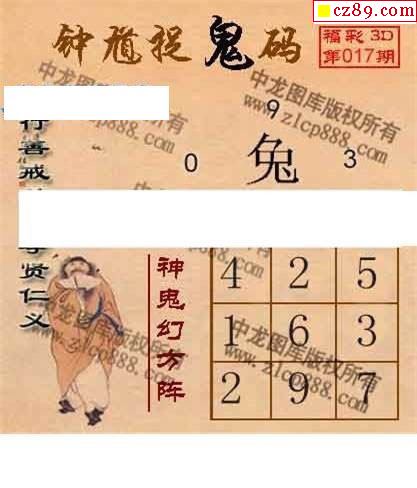 cz89.com
钟馗捉鬼码
福彩 3D
第017期
中龙图库版权所有
www.zlcp888.com
行善戒
9
0 兔 3
贤仁义
神鬼幻方阵
4 2 5
1 6 3
2 9 7
中龙图库版权所有
www.zlcp888.com